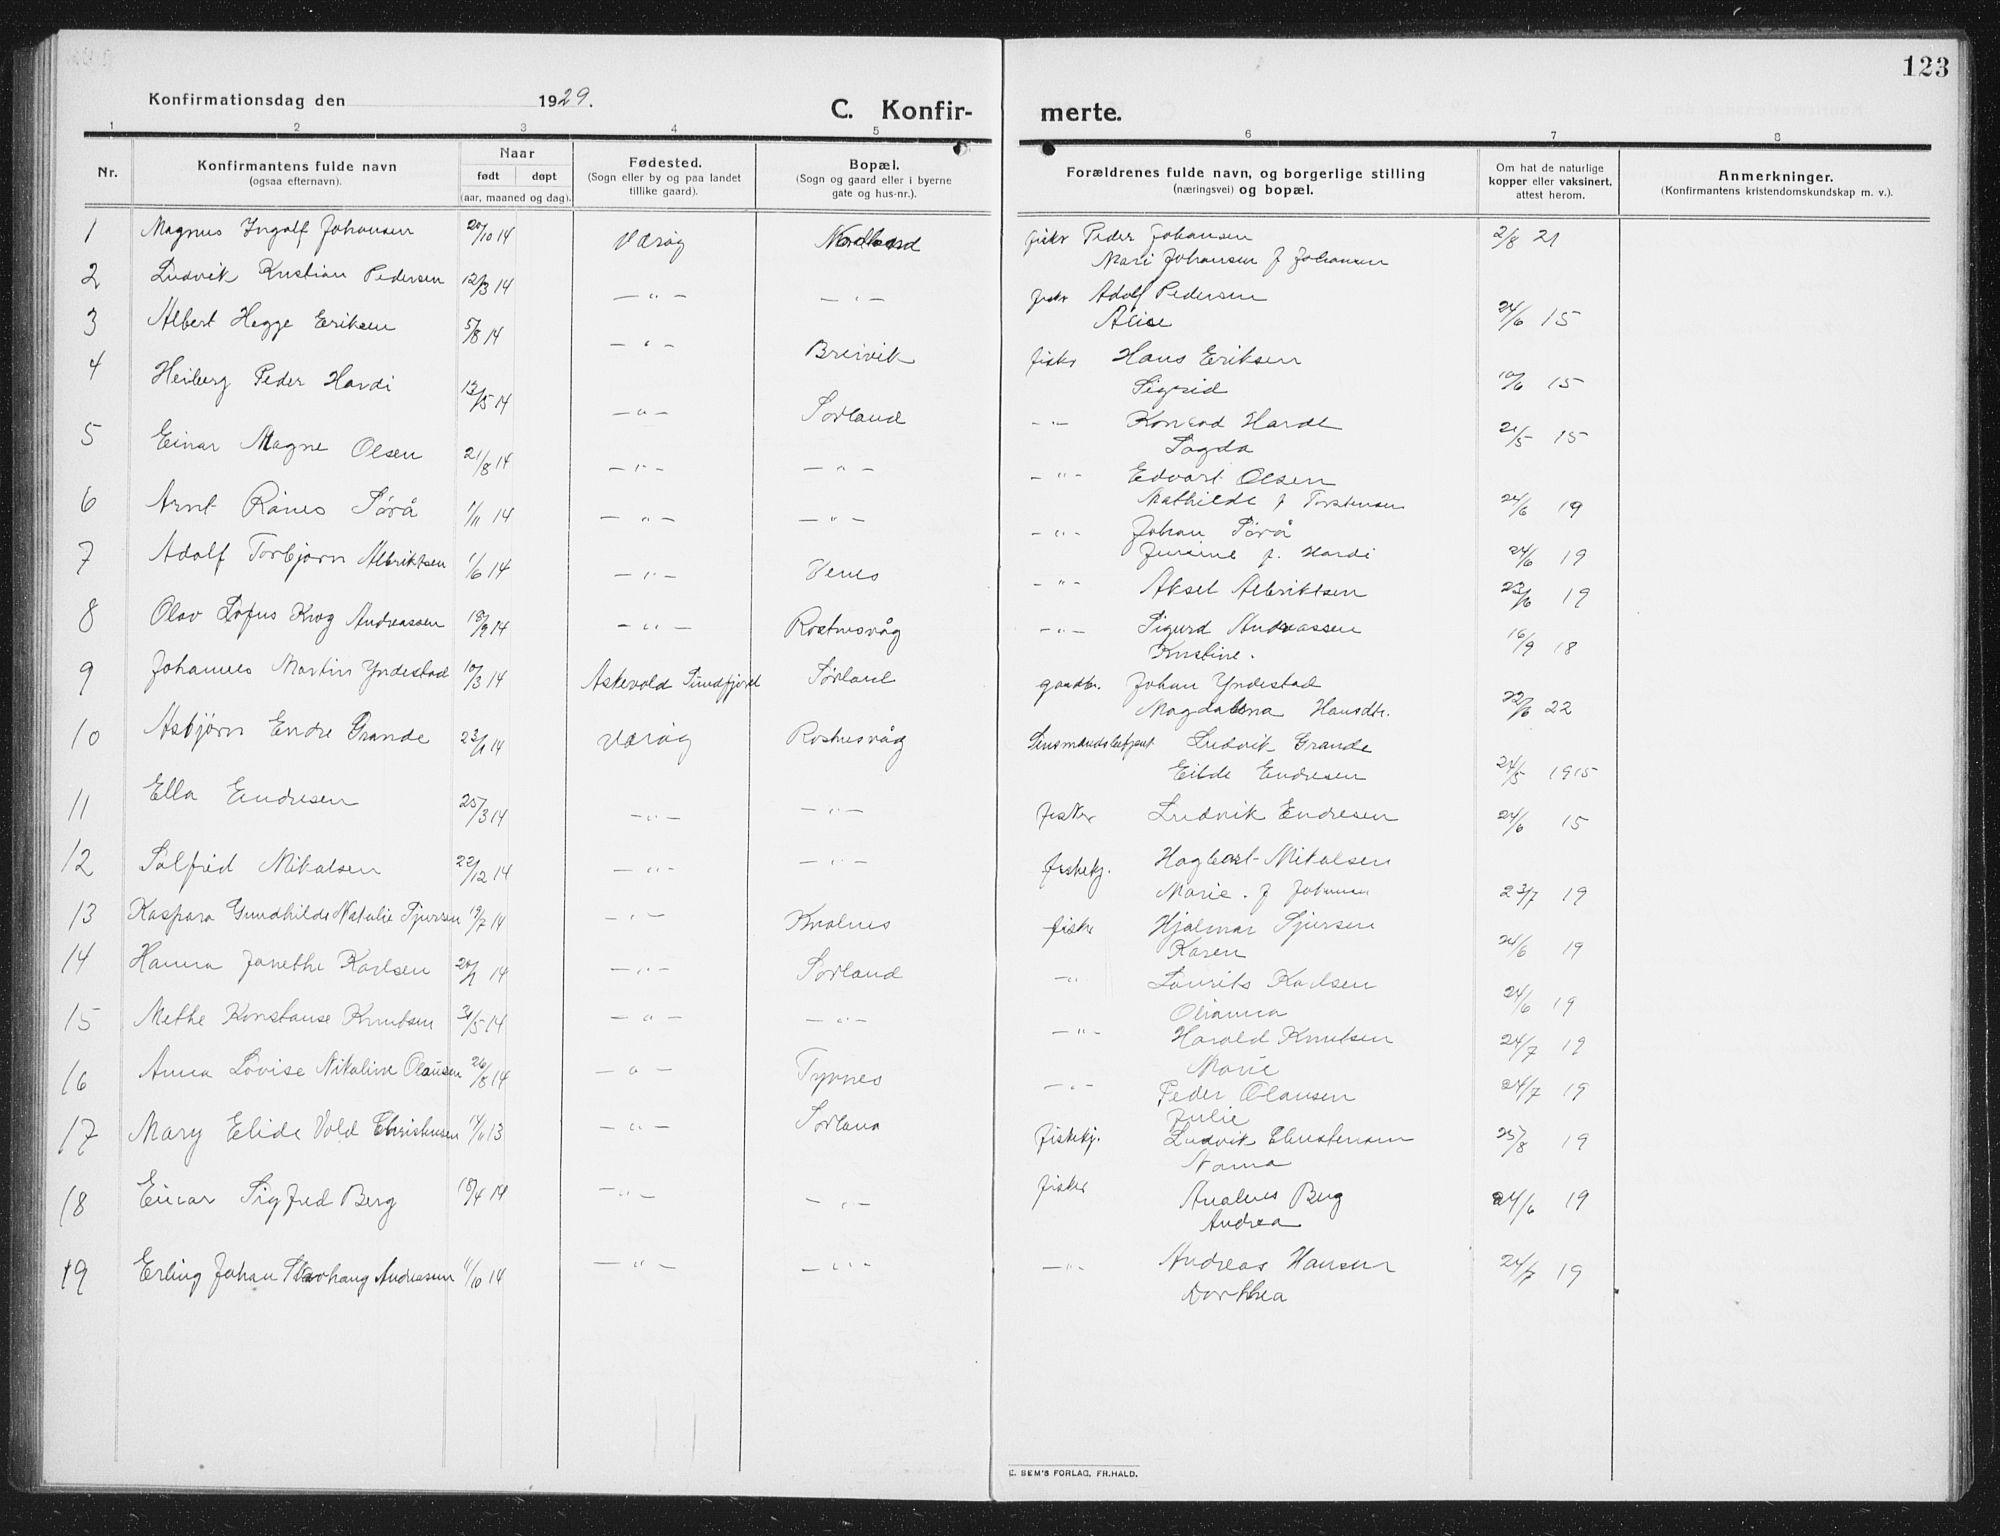 123
Konfirmationsdag den 1929.
C. Konfir-
merte.
1 2 3 4 5 6 7 8
Nr.
Konfirmantens fulde navn
(ogsaa efternavn).
Naar
født døpt
(aar, maaned og dag).
Fødested.
(Sogn eller by og paa landet
tillike gaard).
Bopæl.
(Sogn og gaard eller i byerne
gate og hus-nr.).
Forældrenes fulde navn, og borgerlige stilling
(næringsvei) og bopæl.
Om hat de naturlige
kopper eller vaksinert,
attest herom.
Anmerkninger.
(Konfirmantens kristendomskundskap m. v.).
1 Magnus Ingolf Johansen 20/10 14 Værøy Nordland fiskr Peder Johansen 2/8 21
Mari Johansen f Johansen
2 Ludvik Kristian Pedersen 12/3 14 —"— —"— fiskr Adolf Pedersen 24/6 15
Alise
3 Albert Hegge Eriksen 5/8 14 —"— Breivik fiskr Hans Eriksen 10/6 15
Sigrid
4 Heiberg Peder Hardi 13/5 14 —"— Sørland —"— Konrad Hardi 21/5 15
Magda
5 Einar Magne Olsen 21/8 14 —"— —"— —"— Edvart Olsen 24/6 19
Mathilde f Torstensen
6 Arnt Rånes Sørå 1/11 14 —"— —"— —"— Johan Sørå 24/6 19
Jurine f. Hardi
7 Adolf Torbjørn Albriktsen 1/6 14 —"— Venes —"— Aksel Albriktsen 23/6 19
8 Olav Lofus Krog Andreassen 18/9 14 —"— Røstnesvåg —"— Sigurd Andreassen 16/9 18
Kristine.
9 Johannes Martin Yndestad 10/3 14 Askevold Sundfjord Sørland gaardbr. Johan Yndestad 22/6 22
Magdalena Hansdtr.
10 Asbjørn Endre Grande 23/1 14 Værøy Røstnesvåg Lensmandsbetjent Ludvik Grande 24/5 1915
Eilde Endresen
11 Ella Endresen 25/3 14 —"— —"— fisker Ludvik Endresen 24/6 15
12 Solfrid Mikalsen 22/12 14 —"— —"— fiskekj. Hagbart Mikalsen 23/7 19
Marie. f Johansen
13 Kaspara Gundhilde Natalie Sjursen 19/7 14 —"— Kvalnes fiske Hjalmar Sjursen 24/6 19
Karen
14 Hanna Janethe Karlsen 20/1 14 —"— Sørland —"— Laurits Karlsen 24/6 19
Olianna
15 Methe Konstanse Knutsen 31/5 14 —"— —"— —"— Harald Knutsen 24/7 19
Marie
16 Anna Lovise Nikoline Olausen 26/8 14 —"— Tyvnes —"— Peder Olausen 24/7 19
Julie
17 Mary Elide Vold Christensen 14/11 13 —"— Sørland fiskekj. Ludvik Christensen 25/8 19
Nanna
18 Einar Sigfred Berg 18/4 14 —"— —"— fisker Analius Berg 24/6 19
Andrea
19 Erling Johan Stavhaug Andreasen 11/10 14 —"— —"— —"— Andreas Hansen 24/7 19
Dorthea
E. SEM'S FORLAG, FR.HALD.